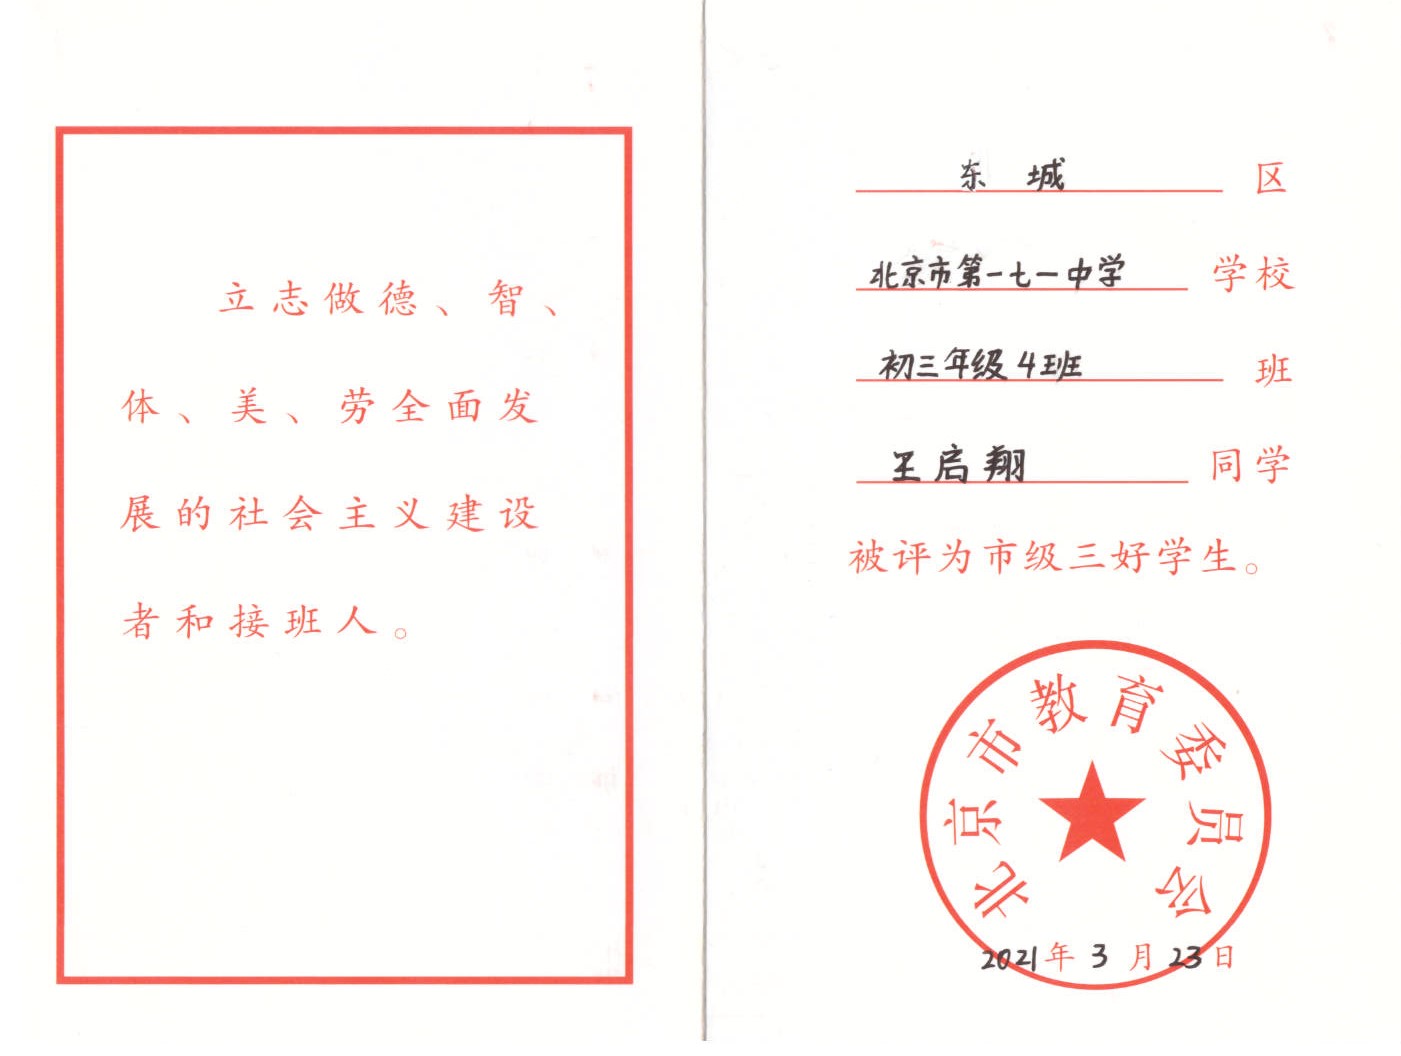 立志做德、智、
体、美、劳全面发
展的社会主义建设
者和接班人。
东 城 区
北京市第一七一中学 学校
初三年级4班 班
王启翔 同学
被评为市级三好学生。
北京市教育委员会
2021年3月23日